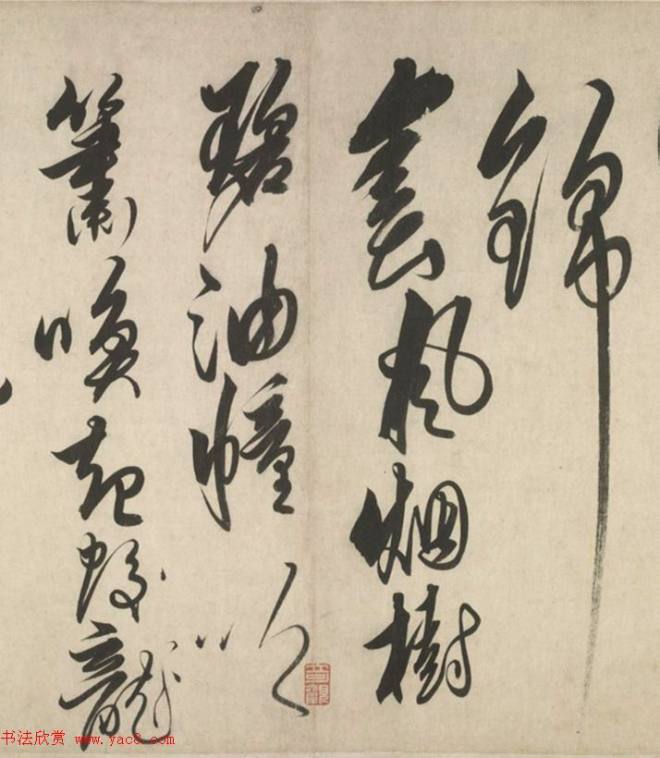 錦
風烟樹
碧油幢吹
簫喚起蛟龍
书法欣赏 www.yac8.com